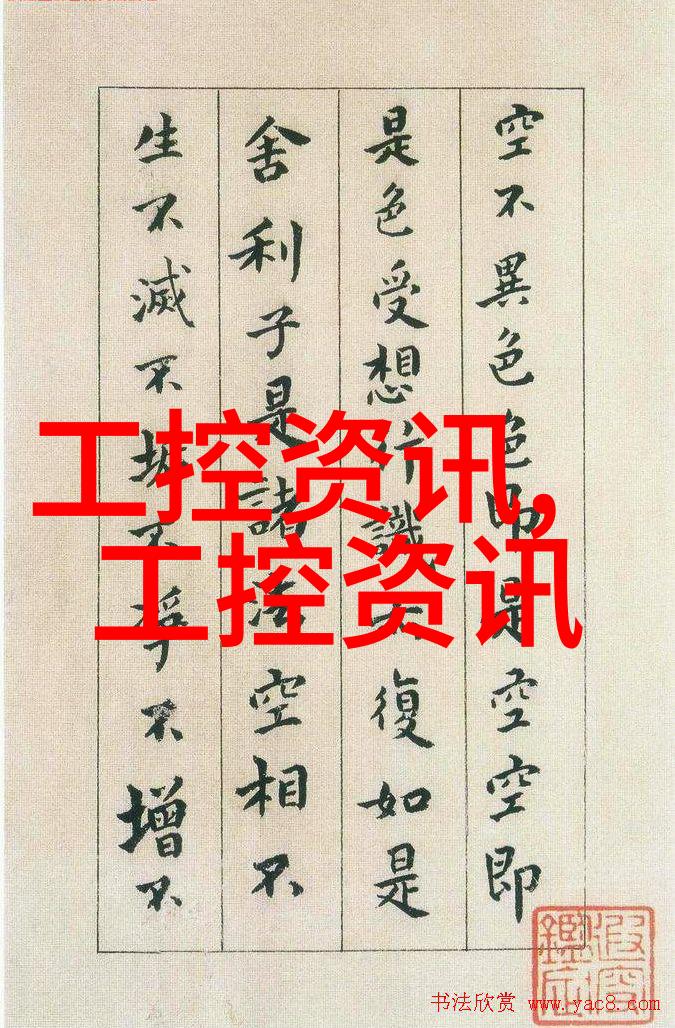 空不異色色即是空空即
是色受想行識亦復如是
舍利子是諸法空相不
生不滅不垢不淨不增不
工控资讯,
工控资讯
书法欣赏 www.yac8.com